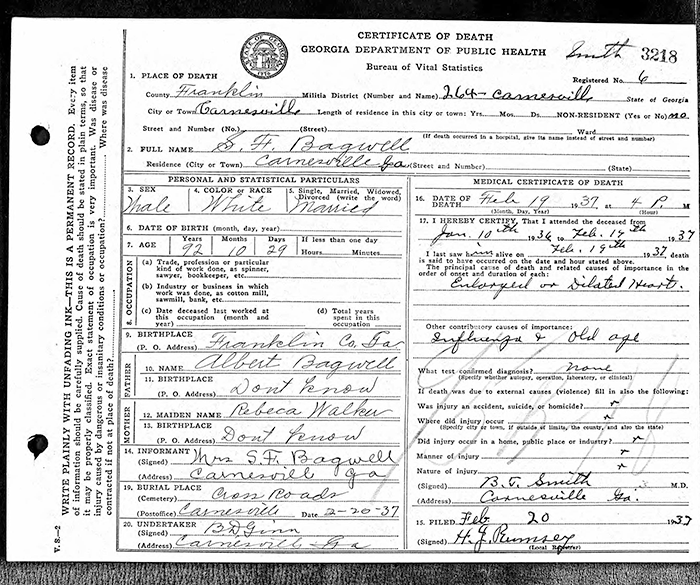 CERTIFICATE OF DEATH
GEORGIA DEPARTMENT OF PUBLIC HEALTH
Bureau of Vital Statistics
STATE OF GEORGIA
1776
Smith 3218
Registered No. 6
1. PLACE OF DEATH
County Franklin Militia District (Number and Name) 264- Carnesville State of Georgia
City or Town Carnesville Length of residence in this city or town: Yrs. Mos. Ds. NON-RESIDENT (Yes or No) no
Street and Number (No.) (Street) Ward
(If death occurred in a hospital, give its name instead of street and number)
2. FULL NAME S. F. Bagwell
Residence (City or Town) Carnesville Ga (Street and Number) (State)
PERSONAL AND STATISTICAL PARTICULARS
3. SEX
Male
4. COLOR or RACE
White
5. Single, Married, Widowed, Divorced (write the word)
Married
6. DATE OF BIRTH (month, day, year)
7. AGE Years Months Days If less than one day
92 10 29 Hours Minutes
8. OCCUPATION
(a) Trade, profession or particular
kind of work done, as spinner,
sawyer, bookkeeper, etc.
(b) Industry or business in which
work was done, as cotton mill,
sawmill, bank, etc.
(c) Date deceased last worked at
this occupation (month and
year)
(d) Total years
spent in this
occupation
9. BIRTHPLACE
(P. O. Address) Franklin Co. Ga
FATHER
10. NAME Albert Bagwell
11. BIRTHPLACE
(P. O. Address) Dont Know
MOTHER
12. MAIDEN NAME Rebeca Walker
13. BIRTHPLACE
(P. O. Address) Dont Know
14. INFORMANT
(Signed) Mrs S. F. Bagwell
(Address) Carnesville Ga
19. BURIAL PLACE
(Cemetery) Cross Roads
(Postoffice) Carnesville Date 2-20-37
20. UNDERTAKER
(Signed) B D Ginn
(Address) Carnesville Ga
MEDICAL CERTIFICATE OF DEATH
16. DATE OF
DEATH Feb 19 1937 at 4 P. M
(Month, Day, Year) (Hour)
17. I HEREBY CERTIFY, That I attended the deceased from
Jan. 10th 1936 to Feb. 19th 1937
I last saw him alive on Feb. 19th 1937 death
is said to have occurred on the date and hour stated above.
The principal cause of death and related causes of importance in the order of onset and duration of each:
Enlarged or Dilated Heart.
Other contributory causes of importance:
Influenza & Old age
What test confirmed diagnosis? none
(Specify whether autopsy, operation, laboratory, or clinical)
If death was due to external causes (violence) fill in also the following:
Was injury an accident, suicide, or homicide?
Where did injury occur
(Specify city or town, if outside of limits, the county, and also the state)
Did injury occur in a home, public place or industry?
Manner of injury
Nature of injury
(Signed) B. T. Smith M.D.
(Address) Carnesville Ga.
15. FILED Feb 20 1937
(Signed) H. J. Rumsey
(Local Registrar)
WRITE PLAINLY WITH UNFADING INK—THIS IS A PERMANENT RECORD. Every item
of information should be carefully supplied. Cause of death should be stated in plain terms, so that
it may be properly classified. Exact statement of occupation is very important. Was disease or
injury caused by dangerous or insanitary conditions or occupation? Where was disease
contracted if not at place of death?
V. S.—2